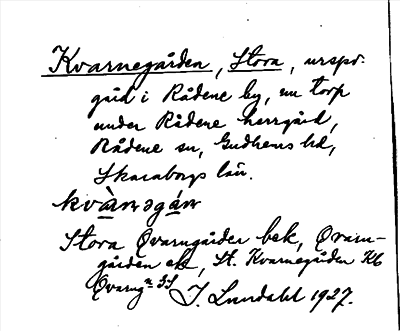 Kvarnegården, Stora, urspr.
gård i Rådene by, nu torp
under Rådene herrgård,
Rådene sn, Gudhems hd,
Skaraborgs län.
kvὰrnəgán
Stora Qvarngården bek, Qvarn-
gården ek, St. Kvarnegården Kb
Qvarng
J. Lundahl 1927.